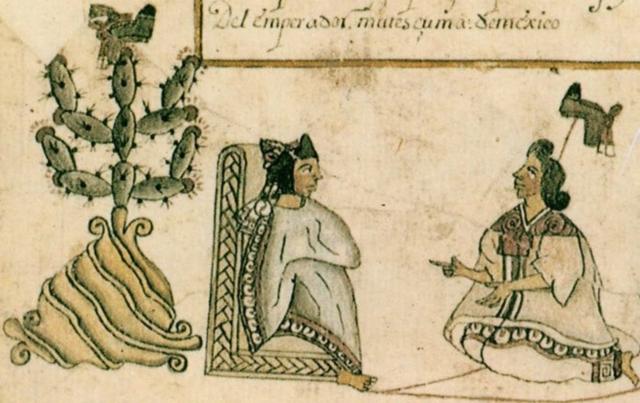 Del emperador, mutesçuma: demexico